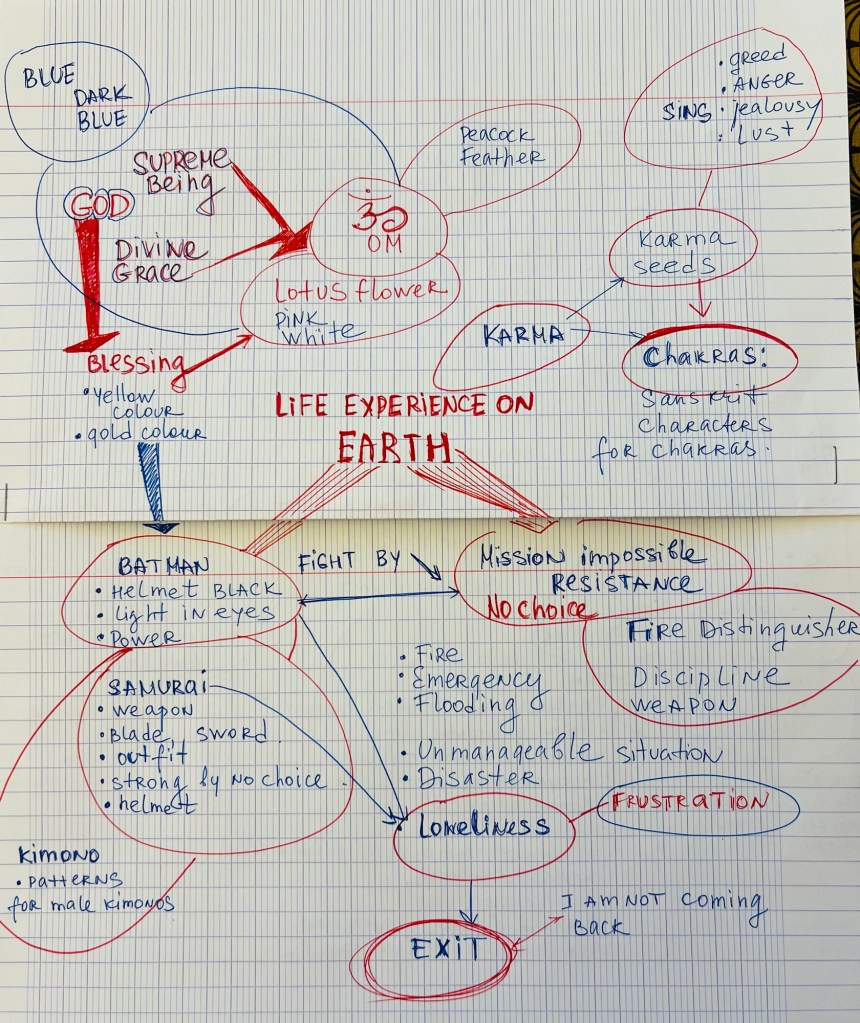 BLUE
DARK
BLUE
SUPREME
Being
GOD
Divine
GRACE
ॐ
OM
Peacock
Feather
Lotus flower
Pink
white
Blessing
• yellow
colour
• gold colour
SINS
• greed
• ANGER
• jealousy
: Lust
Karma
seeds
KARMA
Chakras:
Sanskrit
characters
for chakras.
LIFE EXPERIENCE ON
EARTH
BATMAN
• Helmet BLACK
• Light in eyes
• Power
FIGHT BY
Mission impossible
RESISTANCE
No choice
Fire Distinguisher
Discipline
weapon
SAMURAI
• weapon
• Blade, sword.
• outfit
• strong by no choice
• helmet
• Fire
• Emergency
• Flooding
• Unmanageable situation
• Disaster
Loneliness
FRUSTRATION
Kimono
• patterns
for male kimonos
EXIT
I AM NOT coming
Back